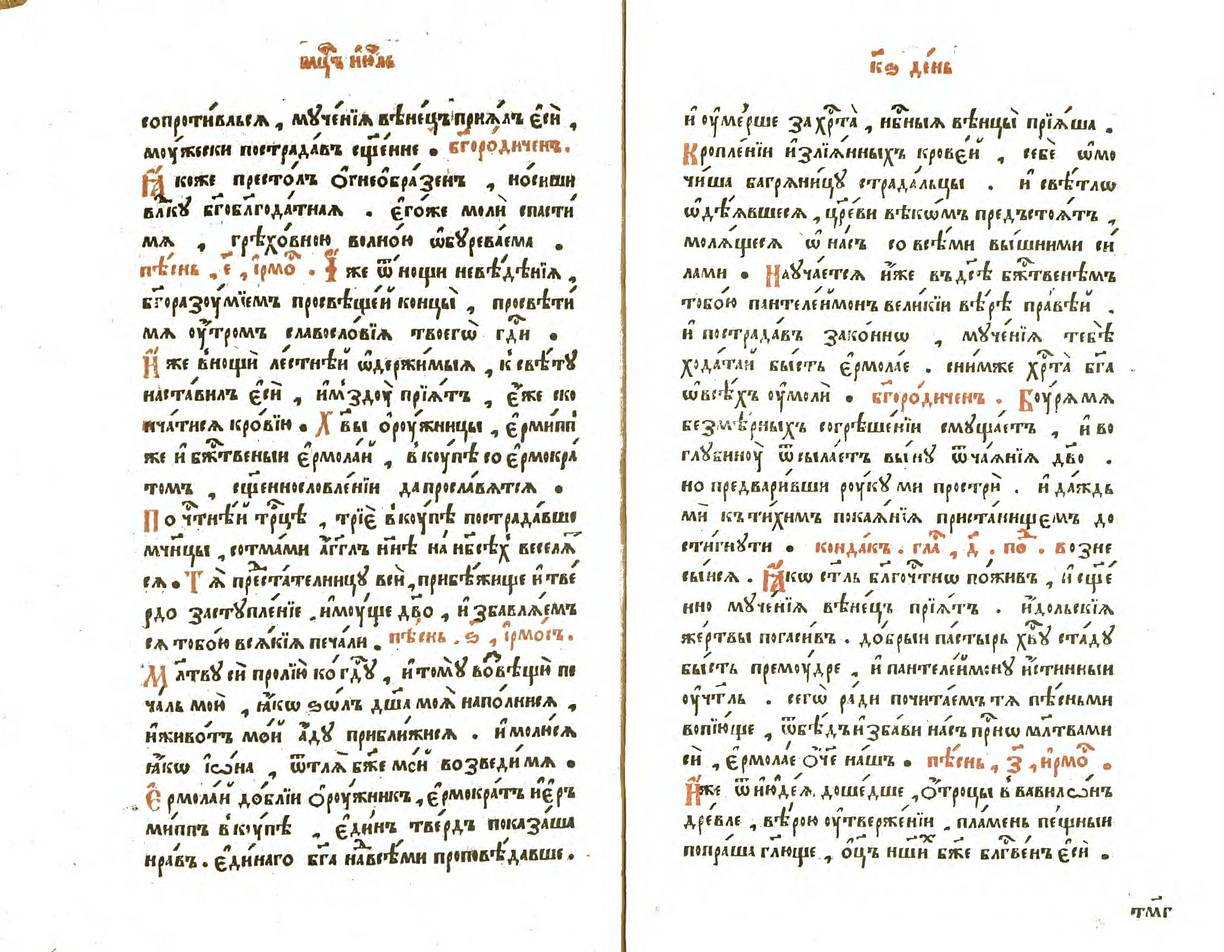 мц҃ъ и҆ю́ль
сопроти́вльсѧ , мꙋче́нїѧ вѣне́цъ прїѧ́лъ є҆сѝ ,
моу́жески пострада́въ сщ҃е́нне . бг҃оро́диченъ .
Ꙗ҆́коже престо́лъ ѻ҆гнеѻбра́зенъ , носи́вши
влⷣкꙋ бг҃облгⷣода́тнаѧ . є҆го́же молѝ спастѝ
мѧ̀ , грѣхо́вною волно́ю ѡ҆бꙋрева́ема .
пѣ́снь , є҃ , і҆рмо́ . І҆́же ѿ но́щи невѣ́дѣнїѧ ,
бг҃оразꙋ́мїемъ просвѣще́й концы̀ , просвѣти́
мѧ оу҆́тромъ славосло́вїѧ твоегѡ̀ гдⷭ҇и .
И҆́же в нощѝ ле́стнѣй ѡ҆держи́мыѧ , к свѣ́тꙋ
наста́вилъ є҆сѝ , и҆ мздоу̀ прїѧ́тъ , є҆́же ско
нча́тисѧ кро́вїю . Хв҃ы ѻ҆роу́жницы , є҆рми́пп
же и҆ бжⷭ҇твеныи є҆рмола́й , в коу́пѣ со є҆рмокра́
томъ , сщ҃еннослове́нїи да просла́вѧтсѧ .
По чⷭ҇тнѣ́й трⷪ҇цѣ , трїѐ в коу́пѣ пострада́вше
мч҃нцы , со тма́ми а҆́гг҃лъ нн҃ѣ на нб҃сѣ́хъ веселѧ́т
сѧ . Тѧ̀ преⷣста́телницꙋ всѝ , прибѣ́жище и҆ тве́
рдо застꙋпле́нїе и҆мꙋ́ще дв҃о , и҆ збавлѧ́емъ
сѧ тобо́ю всѧ́кїѧ печа́ли . пѣ́снь . ѕ҃ , і҆рмо́съ .
Мл҃твꙋ сѝ пролїю̀ ко гдⷭ҇ꙋ , и҆ томꙋ̀ возвѣщꙋ̀ пе
ча́ль мою̀ , ꙗ҆́кѡ ѕѡ́лъ дш҃а моѧ̀ напо́лнисѧ ,
и҆ живо́тъ мо́й а҆́дꙋ прибли́жисѧ . и҆ молю́сѧ
ꙗ҆́кѡ і҆ѡ́на , ѿ тлѧ̀ бж҃е мо́й возведи́ мѧ .
Є҆рмола́й до́блїи ѻ҆роу́жникъ , є҆рмокра́тъ и҆ є҆р
ми́ппъ в коу́пѣ , є҆ди́нъ тве́рдъ показа́ша
нра́въ . є҆ди́наго бг҃а на́д всѣ́ми проповѣ́давше .
к҃ѕ де́нь
и҆ оу҆ме́рше за хрⷭ҇та̀ , нбⷭ҇ныѧ вѣнцы̀ прїѧ́ша .
Кропле́нїи и҆злїѧ́нныхъ крове́й , себѐ ѡ҆мо
чи́ша багрѧни́цꙋ страда́льцы . и҆ свѣ́тлѡ
ѡ҆дѣ́ѧвшесѧ , цр҃еви вѣкѡ́мъ предъстоѧ́тъ ,
молѧ́щесѧ ѡ҆ на́съ со всѣ́ми вы́шними си́
лами . Науча́етсѧ и҆́же въ дс҃ѣ бжⷭ҇твенѣмъ
тобо́ю пантелеи́монъ вели́кїи вѣ́рѣ пра́вѣй .
и҆ пострада́въ зако́ннѡ , мꙋче́нїѧ тебѣ̀
хода́тай бы́сть є҆рмола́е . с ни́мже хрⷭ҇та̀ бг҃а
ѡ҆ всѣ́хъ оу҆молѝ . бг҃оро́диченъ . Боу́рѧ мѧ
безмѣ́рныхъ согрѣше́нїи смꙋща́етъ , и҆ во
глꙋбиноу̀ ѿсыла́етъ вы́нꙋ ѿча́ѧнїѧ дв҃о .
но предвари́вши роу́кꙋ ми прострѝ . и҆ да́ждь
мѝ къ ти́химъ покаѧ́нїѧ приста́нищемъ до
сти́гнꙋти . конда́къ . гла́ , д҃ . по . возне
сы́исѧ . Ꙗ҆́кѡ ст҃ль блг҃очⷭ҇тнѡ пожи́въ , и҆ сщ҃е́
нно мꙋче́нїѧ вѣне́цъ прїѧ́тъ . и҆́дольскїѧ
же́ртвы погаси́въ . до́брыи па́стырь хв҃ꙋ ста́дꙋ
бы́сть премоу́дре , и҆ пантелеи́монꙋ и҆́стинныи
оу҆чт҃ль . сегѡ̀ ра́ди почита́емъ тѧ пѣ́сньми
вопїю́ще , ѿ бѣ́дъ и҆зба́ви на́съ при́снѡ мл҃твами
сѝ , є҆рмола́е ѻ҆́ч҃е на́шъ . пѣ́снь , з҃ , и҆рмо́ .
И҆́же ѿ и҆юде́ѧ доше́дше , ѻ҆́троцы в вавилѡ́нѣ
дре́вле , вѣ́рою оу҆тверже́нїи , пла́мень пе́щныи
попра́ша гл҃юще , ѻ҆ц҃ъ на́шихъ бж҃е блгⷭ҇ве́нъ є҆сѝ .
тм҃г